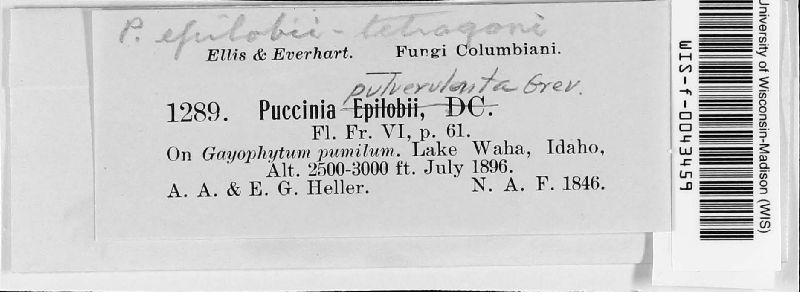 P. epilobii-tetragoni
Ellis & Everhart. Fungi Columbiani.
pulverulenta Grev.
1289. Puccinia Epilobii, DC.
Fl. Fr. VI, p. 61.
On Gayophytum pumilum. Lake Waha, Idaho,
Alt. 2500-3000 ft. July 1896.
A. A. & E. G. Heller. N. A. F. 1846.
WIS-f-0043459
University of Wisconsin-Madison (WIS)